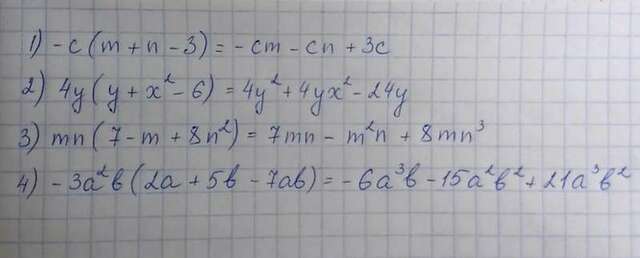 1) -c(m + n - 3) = -cm - cn + 3c
2) 4y(y + x² - 6) = 4y² + 4yx² - 24y
3) mn(7 - m + 8n²) = 7mn - m²n + 8mn³
4) -3a²b(2a + 5b - 7ab) = -6a³b - 15a²b² + 21a³b²